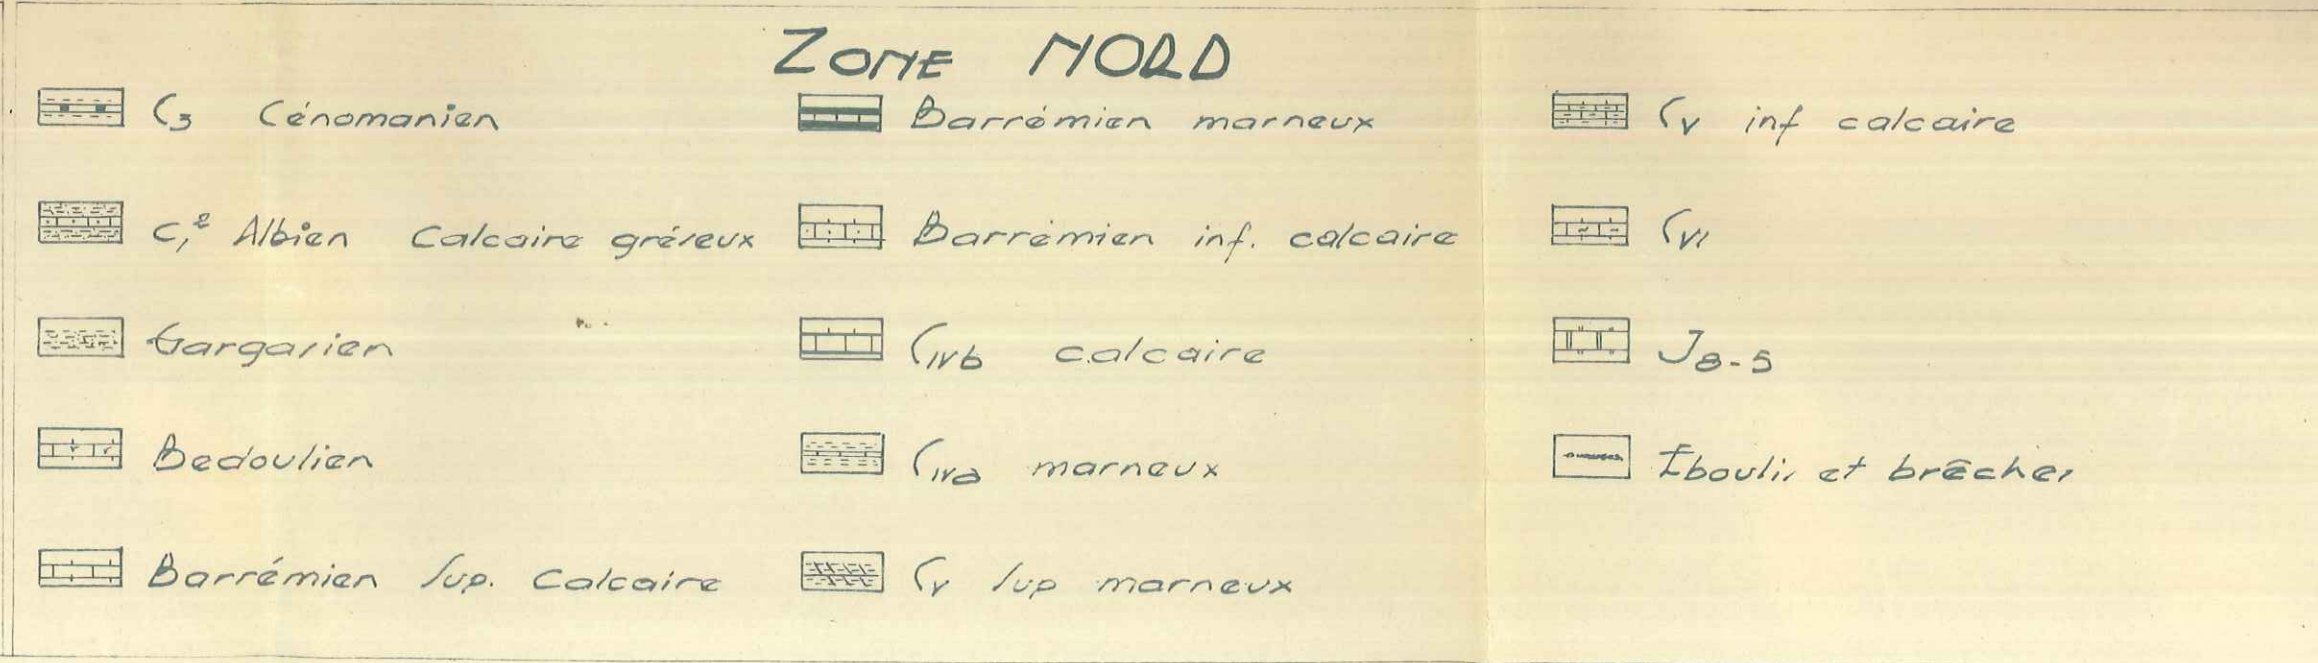 ZONE NORD
C3 Cénomanien
C1² Albien Calcaire gréseux
Gargasien
Bedoulien
Barrémien Sup. Calcaire
Barrémien marneux
Barrémien inf. calcaire
CIVb calcaire
CIVa marneux
CV Sup marneux
CV inf calcaire
CVI
J8-5
Eboulis et brêches